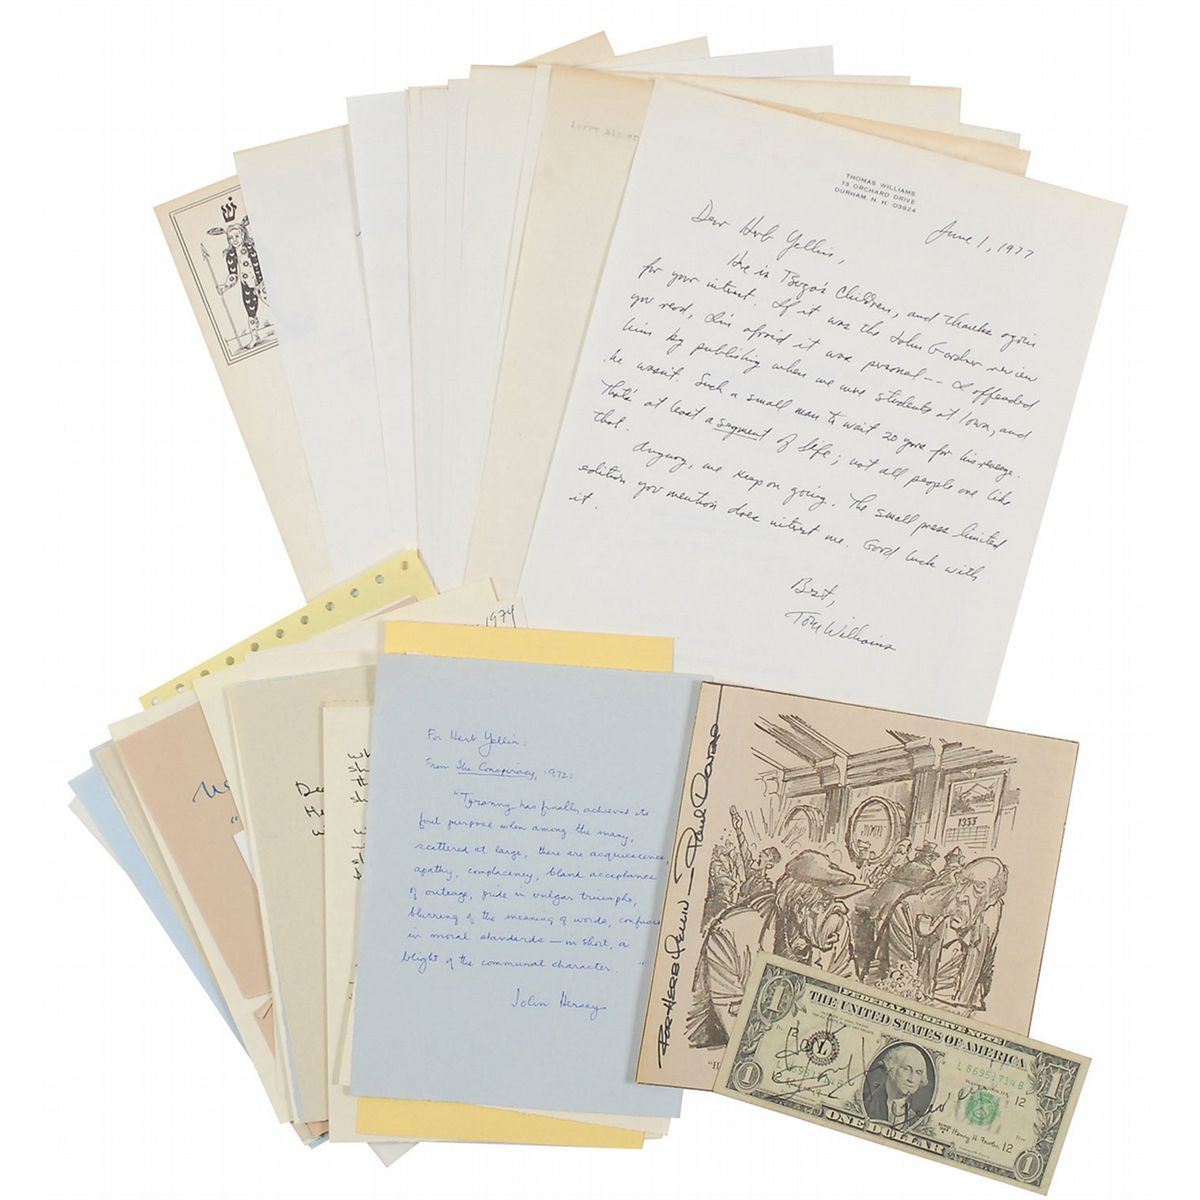 THOMAS WILLIAMS
13 ORCHARD DRIVE
DURHAM, N. H. 03824
June 1, 1977
Dear Herb Yellin,
Here is Tsuga's Children, and thanks again
for your interest. If it was the John Gardner review
you read, I'm afraid it was personal -- I offended
him by publishing when we were students at Iowa, and
he wasn't. Such a small man to wait 20 years for his revenge.
That's at least a segment of life; not all people are like
that.
Anyway, we keep on going. The small press limited
edition you mention does interest me. Good luck with
it.
Best,
Tom Williams
1974
For Herb Yellin,
From The Conspiracy, 1972:
"Tyranny has finally achieved its
foul purpose when among the many,
scattered at large, there are acquiescence,
apathy, complacency, bland acceptance
of outrage, pride in vulgar triumphs,
blurring of the meaning of words, confusion
in moral standards — in short, a
blight of the communal character. "
John Hersey
FOR HERB YELLIN — Paul Darrow
1933
"H
FEDERAL RESERVE NOTE
THE UNITED STATES OF AMERICA
L 86951714 B
L 86951714 B
WASHINGTON, D.C.
12
12
L
1
1
1
1
ONE DOLLAR